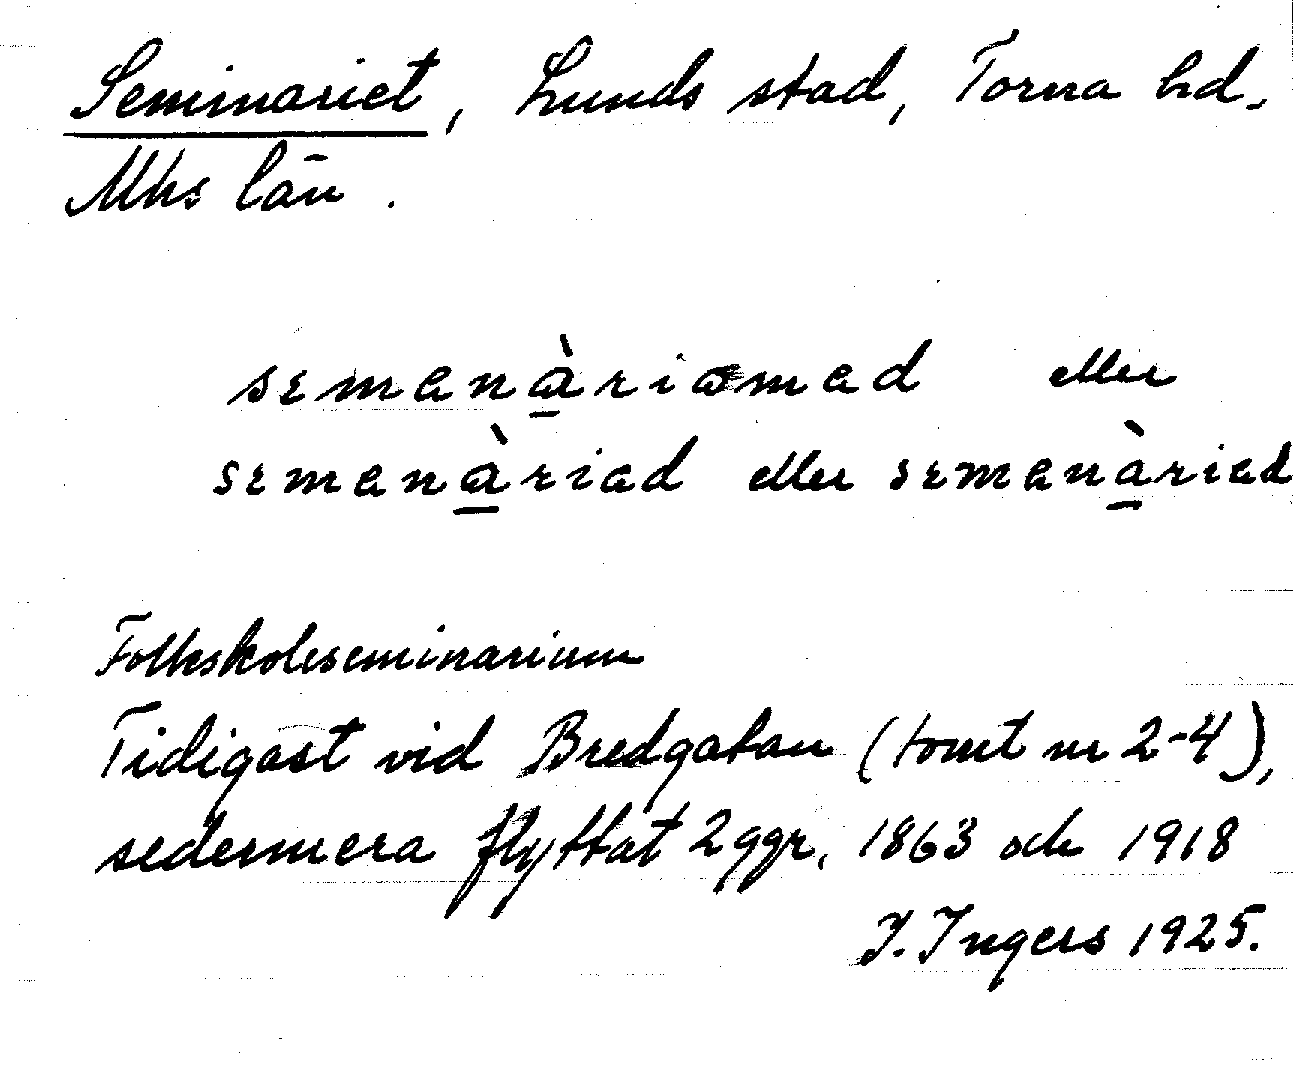 Seminariet, Lunds stad, Torna hd.
Mhs län.
semanàriəmad eller
semanàriad eller semanàriad
Folkskoleseminarium
Tidigast vid Bredgatan (tomt nr 2-4),
sedermera flyttat 2 ggr, 1863 och 1918
I. Ingers 1925.